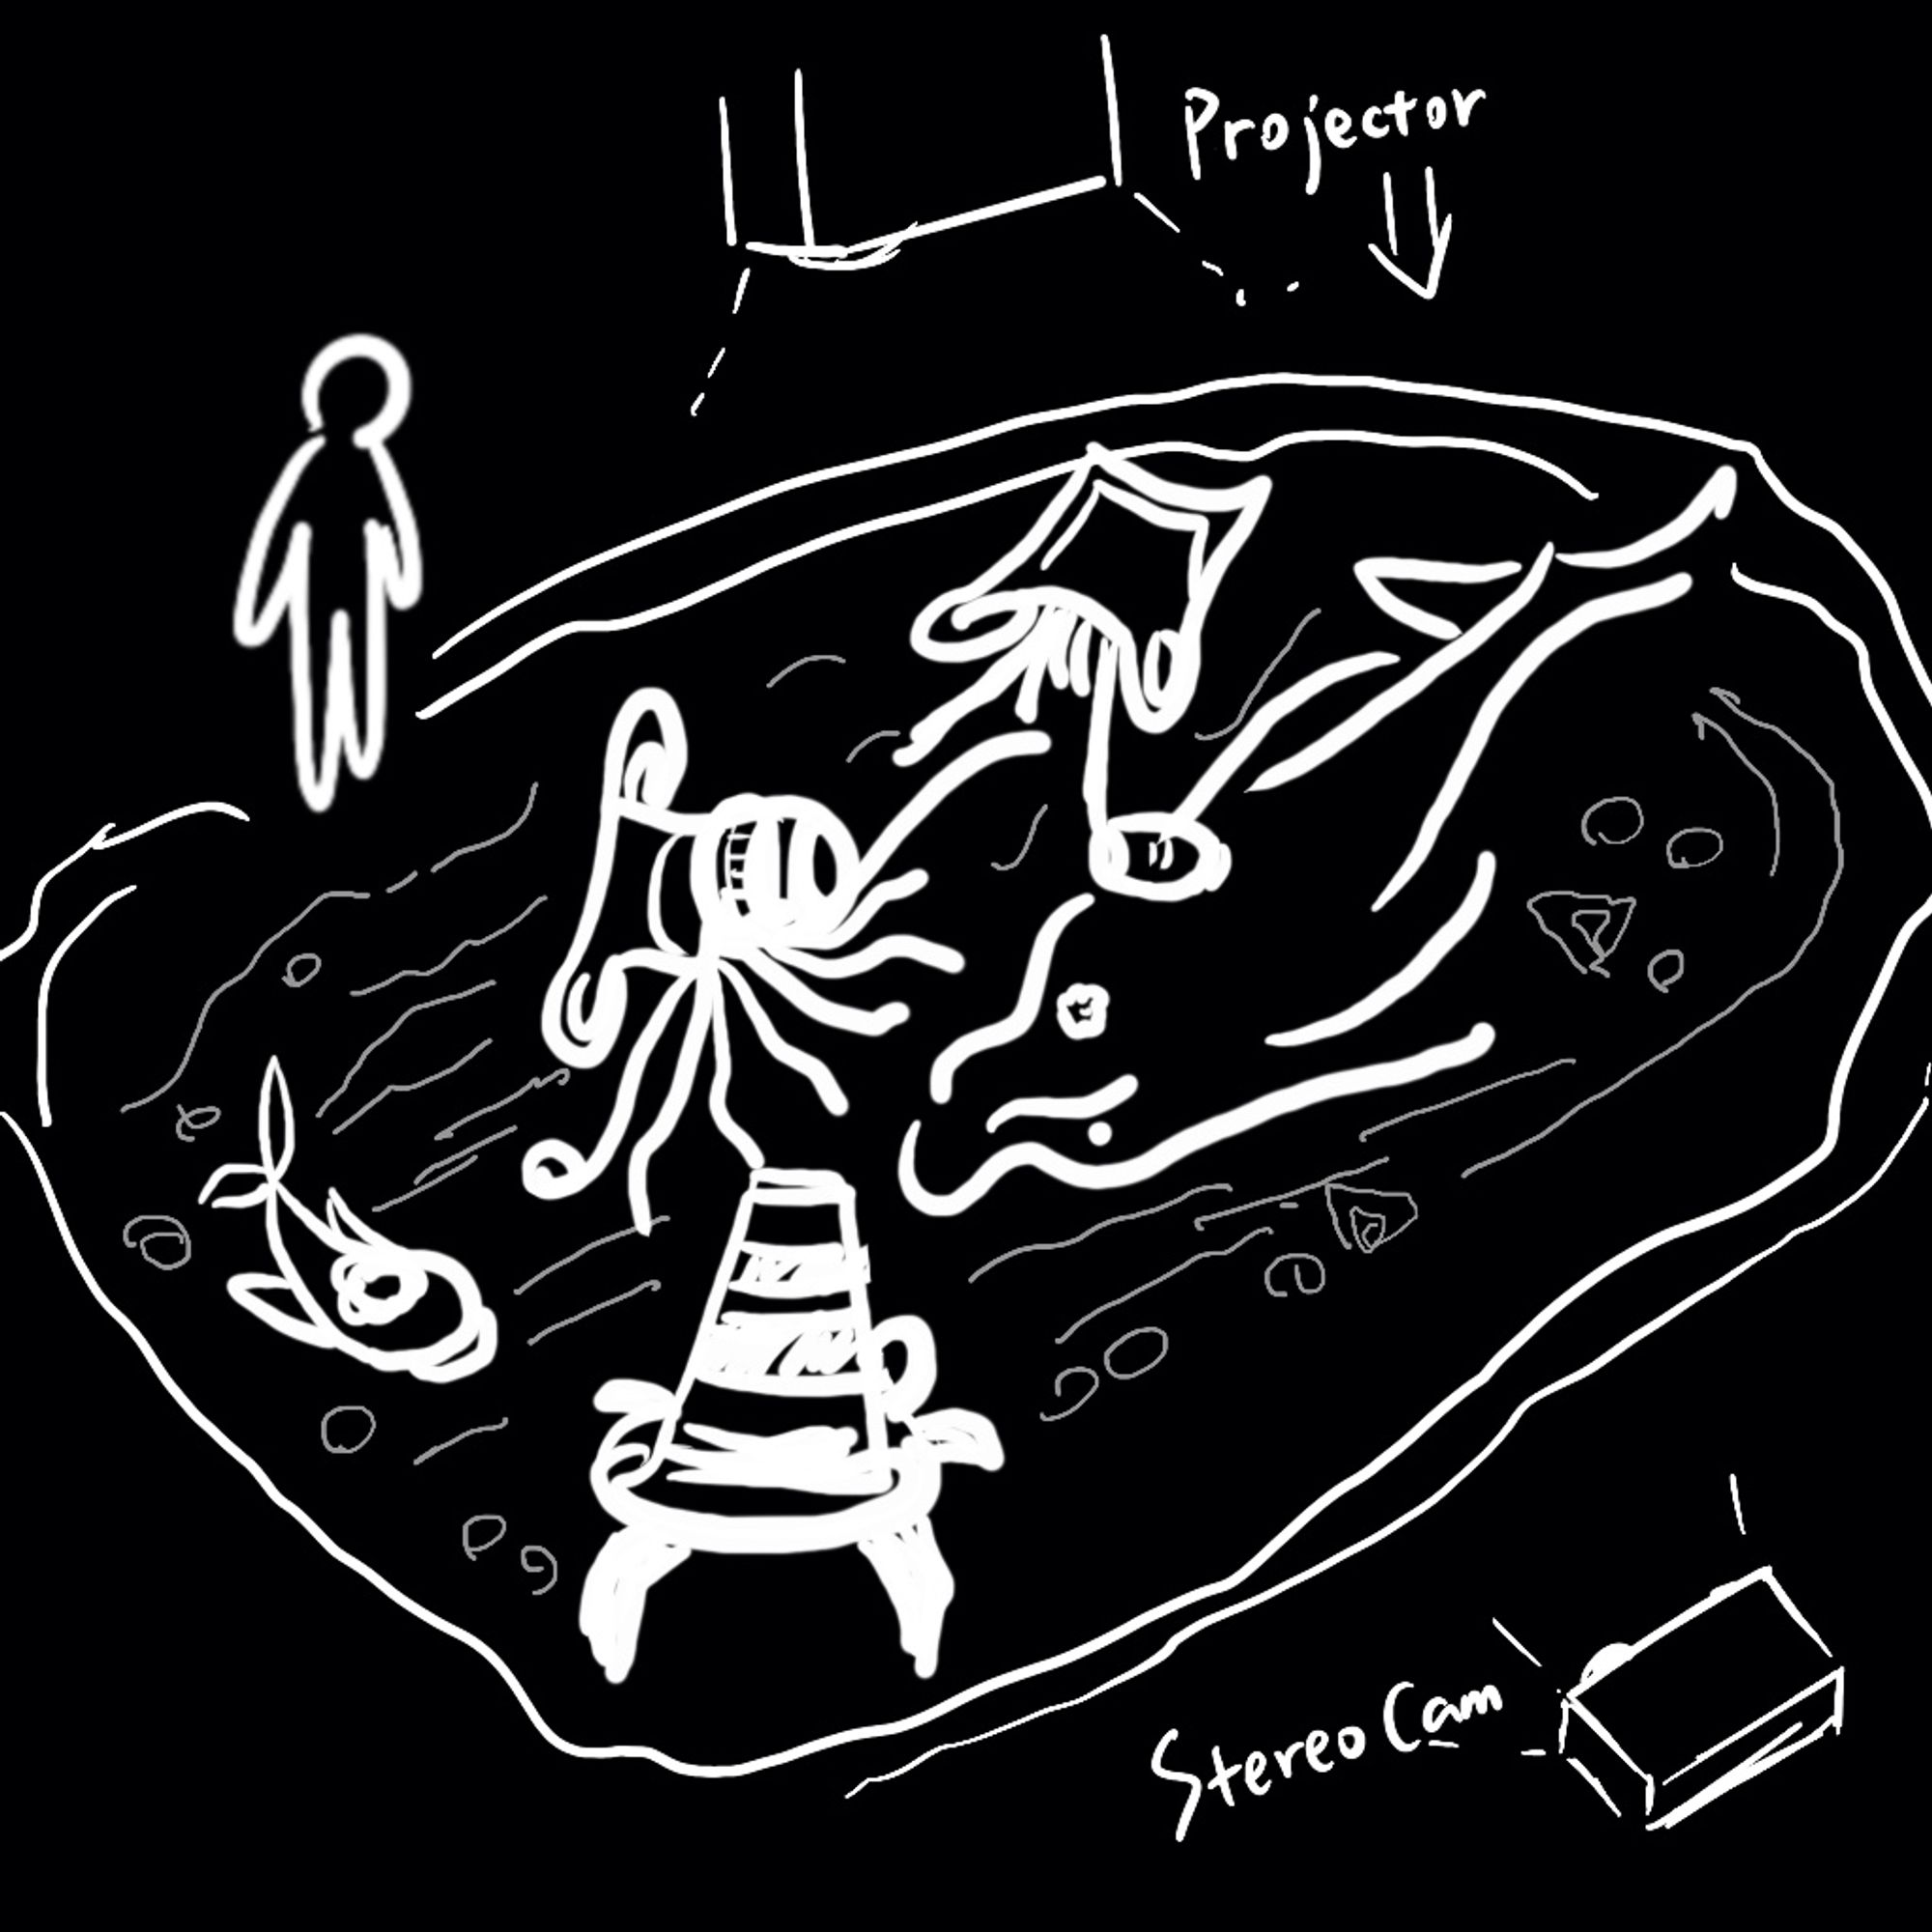 Projector
Stereo Cam